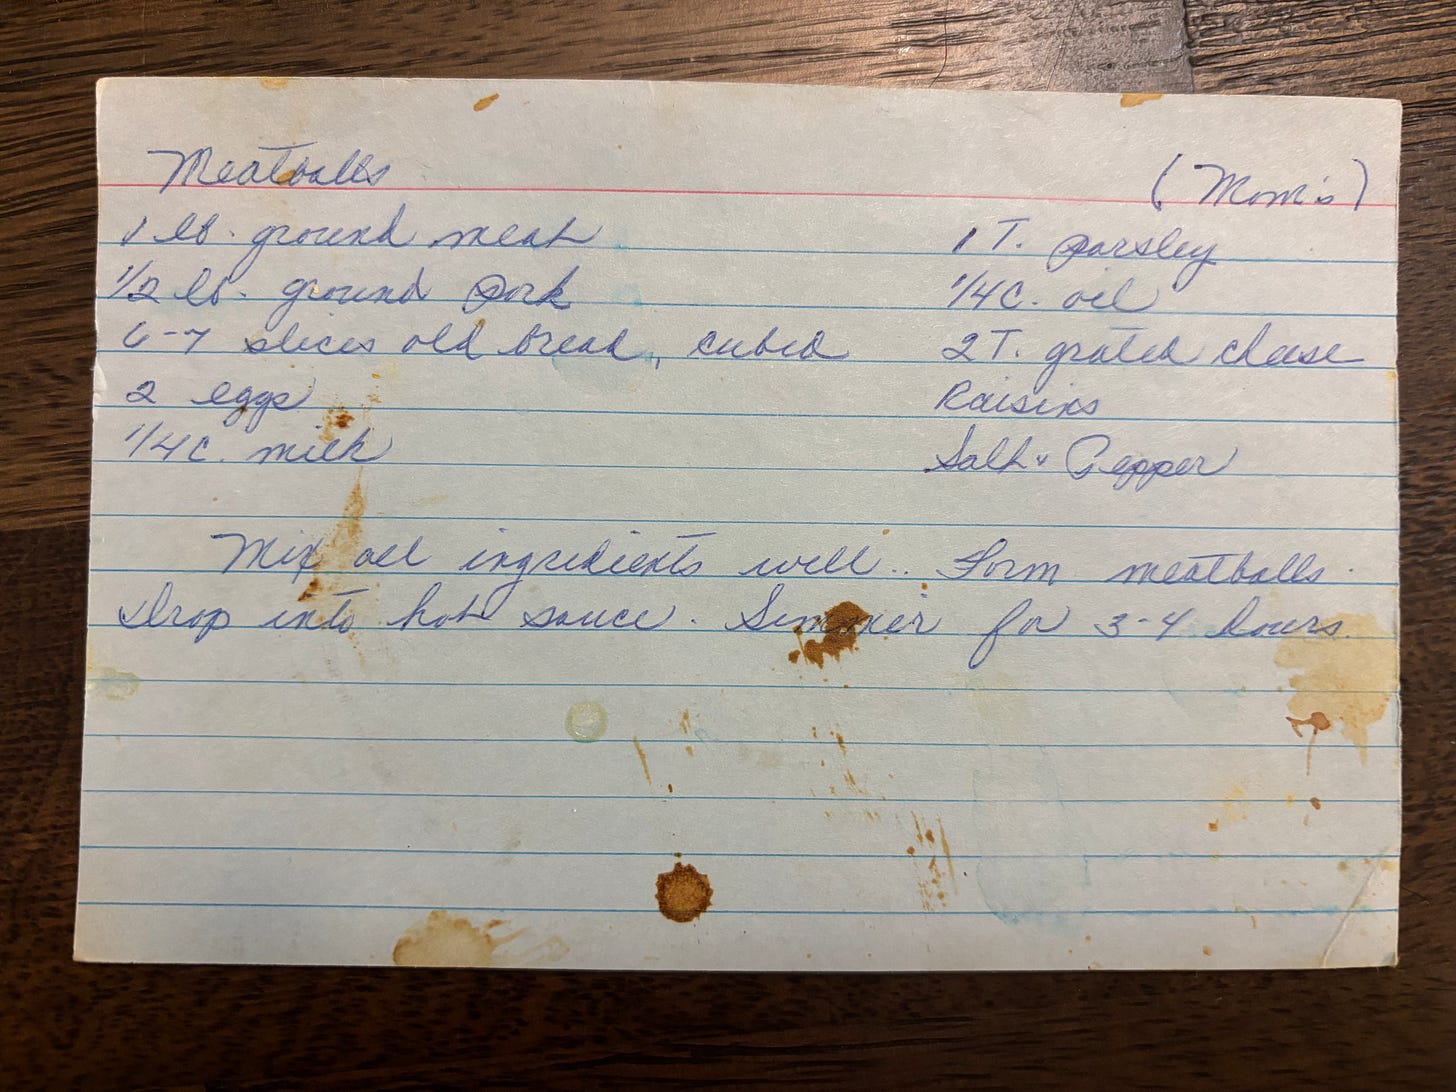 Meatballs (Mom's)
1 lb. ground meat 1 T. parsley
1/2 lb. ground pork 1/4 c. oil
6-7 slices old bread, cubed 2 T. grated cheese
2 eggs Raisins
1/4 c. milk Salt & Pepper
Mix all ingredients well.. Form meatballs.
Drop into hot sauce. Simmer for 3-4 hours.